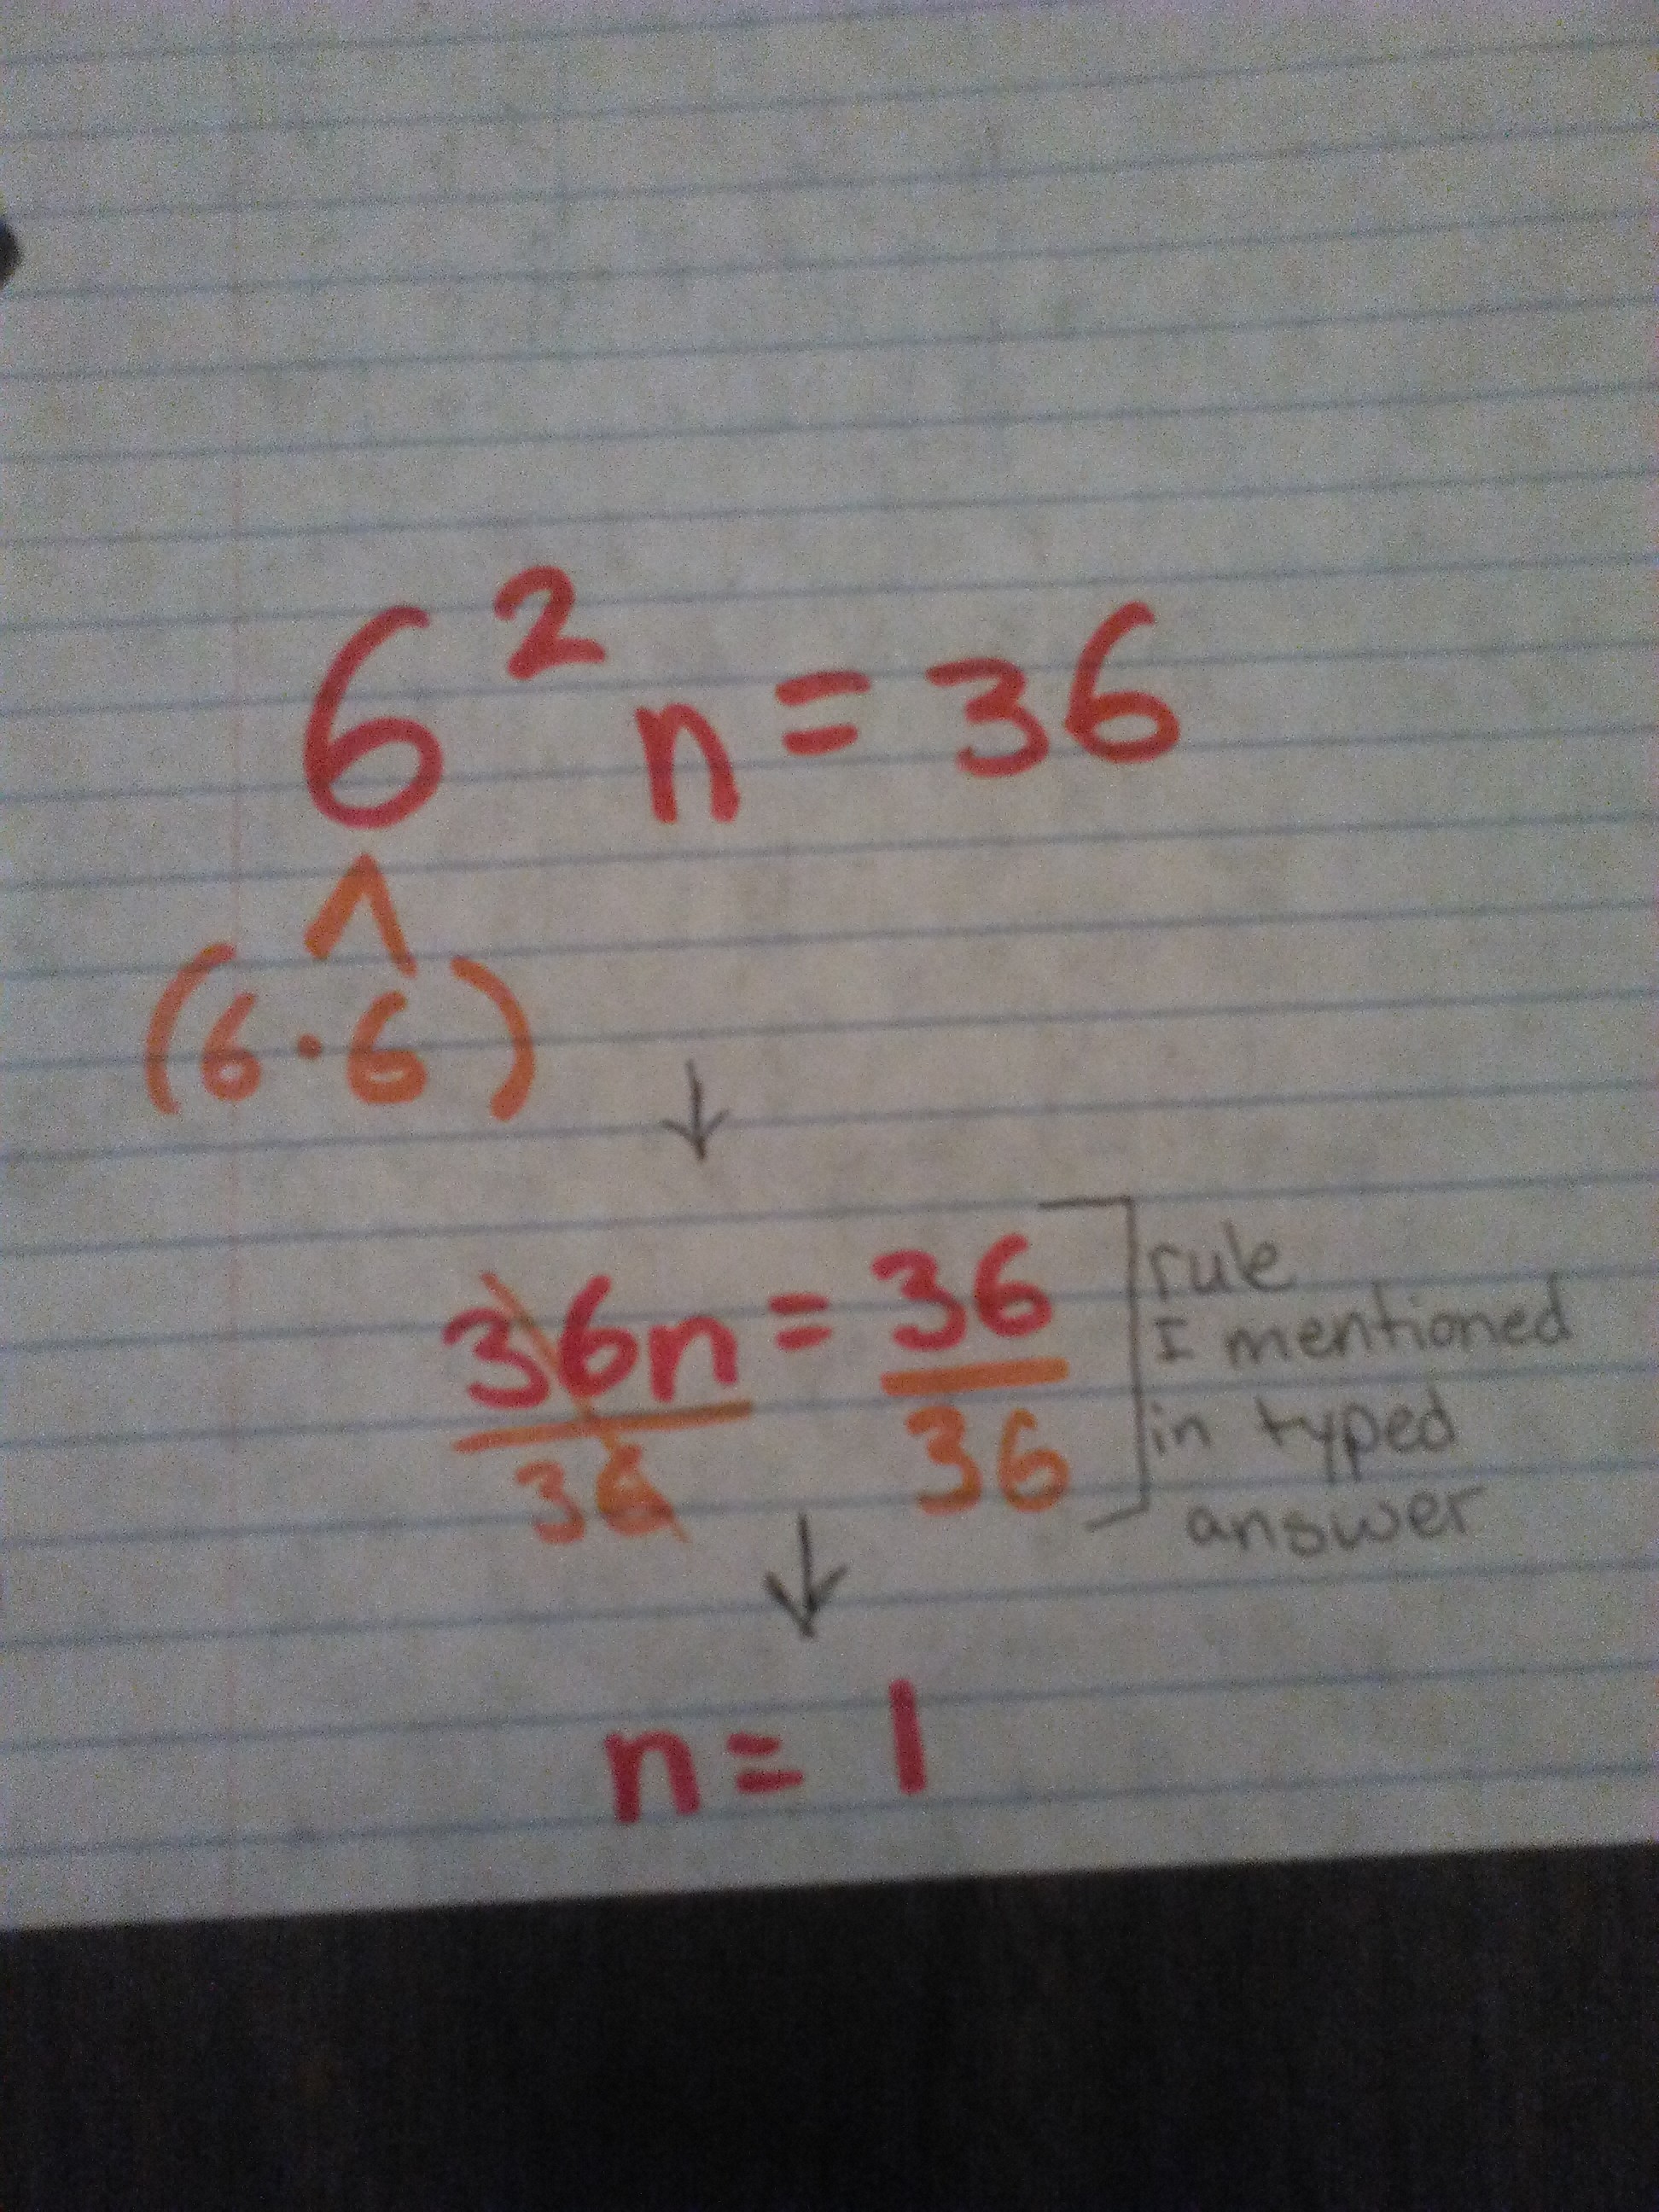 6² n = 36
(6·6)
↓
36n = 36
36 36
rule
I mentioned
in typed
answer
↓
n = 1